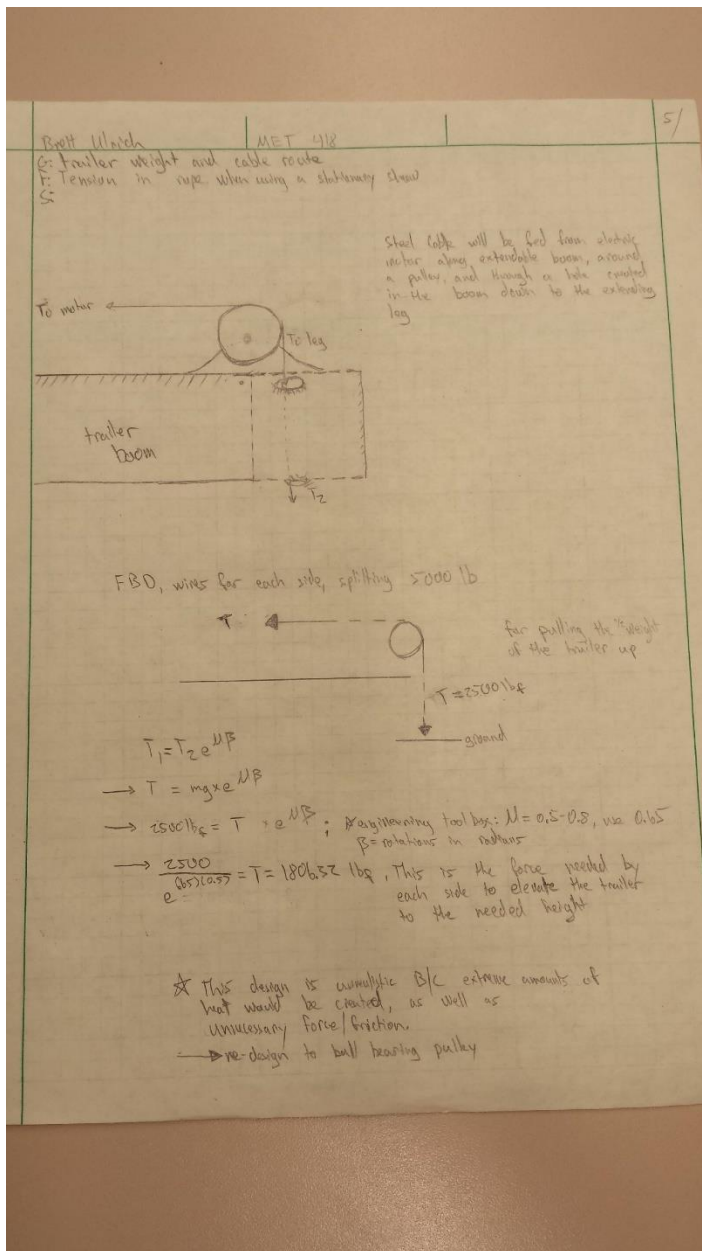 MET 418
5/
G: trailer weight and cable route
F: Tension in rope when using a stationary
S:
Steel cable will be fed from electric
motor along extendable boom, around
a pulley, and through a hole created
in the boom down to the extending
leg
To motor
To leg
trailer
boom
T₂
FBD, wires for each side, splitting 5000 lb
T
for pulling the weight
of the trailer up
T = 2500 lbf
ground
T₁ = T₂ e^μβ
→ T = mg × e^μβ
→ 2500 lbf = T × e^μβ ; engineering toolbox: μ = 0.5-0.8, use 0.65
β = rotations in radians
→ 2500 / e^(.65)(0.5) = T = 1806.32 lbf, This is the force needed by
each side to elevate the trailer
to the needed height
☆ This design is B/C extreme amounts of
heat would be created, as well as
unnucessary force/friction.
→ re-design to ball bearing pulley